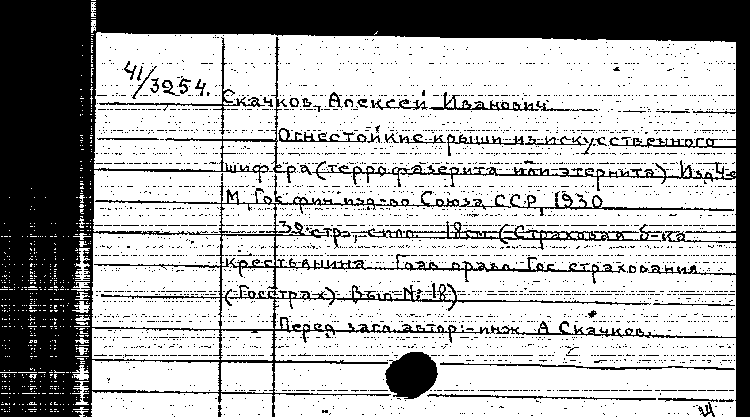 41/3254.
Скачков, Алексей Иванович.
Огнестойкие крыши из искусственного
шифера (террофазерита или этернита) Изд 4-е
М, Гос фин изд-во Союза ССР, 1930
32 стр, с илл 18 см (Страховая б-ка
крестьянина Глав правл Гос страхования
(Госстрах) Вып № 18)
Перед загл. автор:-инж. А Скачков.